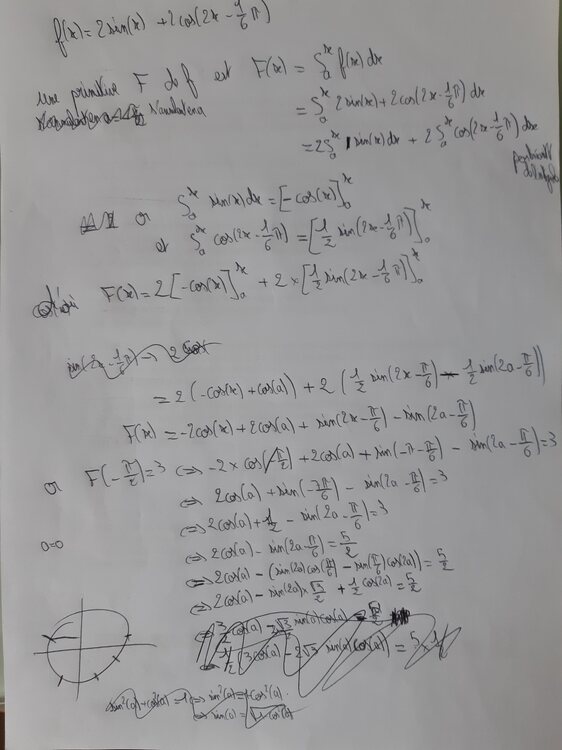 f(x) = 2 sin(x) + 2 cos(2x - 1/6 π)
une primitive F de f est F(x) = ∫ₐˣ f(x) dx
= ∫ₐˣ 2 sin(x) + 2 cos(2x - 1/6 π) dx
= 2 ∫ₐˣ sin(x) dx + 2 ∫ₐˣ cos(2x - 1/6 π) dx
or ∫ₐˣ sin(x) dx = [-cos(x)]ₐˣ
et ∫ₐˣ cos(2x - 1/6 π) = [1/2 sin(2x - 1/6 π)]ₐˣ
F(x) = 2[-cos(x)]ₐˣ + 2 × [1/2 sin(2x - 1/6 π)]ₐˣ
sin(2x - 1/6 π) → 2 cos
= 2(-cos(x) + cos(a)) + 2(1/2 sin(2x - π/6) - 1/2 sin(2a - π/6))
F(x) = -2cos(x) + 2cos(a) + sin(2x - π/6) - sin(2a - π/6)
or F(-π/2) = 3 ⇔ -2 × cos(-π/2) + 2cos(a) + sin(-π - π/6) - sin(2a - π/6) = 3
⇔ 2cos(a) + sin(-7π/6) - sin(2a - π/6) = 3
⇔ 2cos(a) + 1/2 - sin(2a - π/6) = 3
0=0
⇔ 2cos(a) - sin(2a - π/6) = 5/2
⇔ 2cos(a) - (sin(2a) cos(π/6) - sin(π/6) cos(2a)) = 5/2
⇔ 2cos(a) - sin(2a) × √3/2 + 1/2 cos(2a) = 5/2
sin²(a) + cos²(a) = 1 ⇔ sin²(a) = 1 - cos²(a)
⇔ sin(a) = √1 - cos²(a)